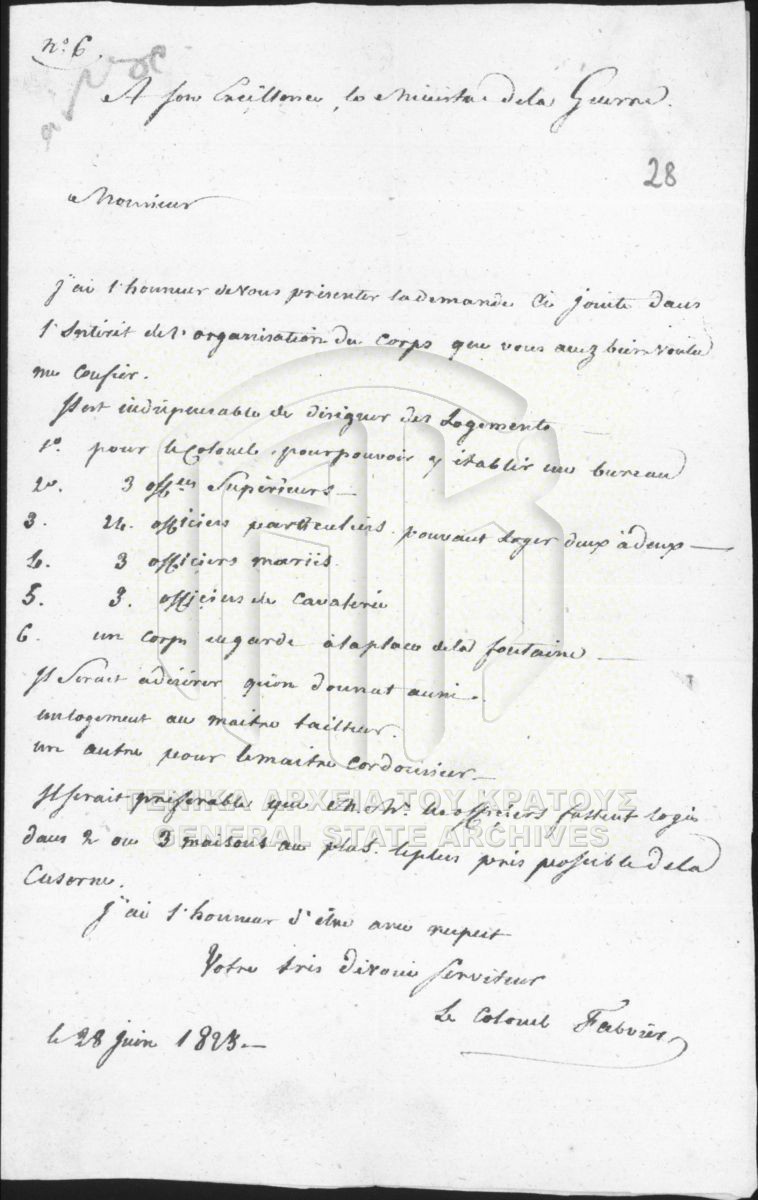 nº 6.
A Son Excellence le Ministre de la Guerre.
28
Monsieur
J'ai l'honneur de vous présenter la demande ci jointe dans
l'Intérêt de l'organisation du Corps que vous avez bien voulu
me Confier.
Il est indispensable de désigner des Logements
1º. pour le Colonel, pour pouvoir y établir un bureau
2º. 3 offers Supérieurs —
3. 24. officiers particuliers pouvant Loger deux à deux —
4. 3 officiers mariés.
5. 3. officiers de Cavalerie
6. un Corps de garde à la place de la fontaine —
Il Serait à désirer qu'on donnat aussi.
un logement au maitre tailleur.
un autre pour le maitre Cordonnier —
Il serait préférable que M.M.rs les officiers fussent logés
dans 2 ou 3 maisons au plus. le plus près possible de la
Caserne.
J'ai l'honneur d'être avec respect
Votre très dévoué serviteur
Le Colonel Fabvier
le 28 juin 1825. —
ΓΕΝΙΚΑ ΑΡΧΕΙΑ ΤΟΥ ΚΡΑΤΟΥΣ
GENERAL STATE ARCHIVES